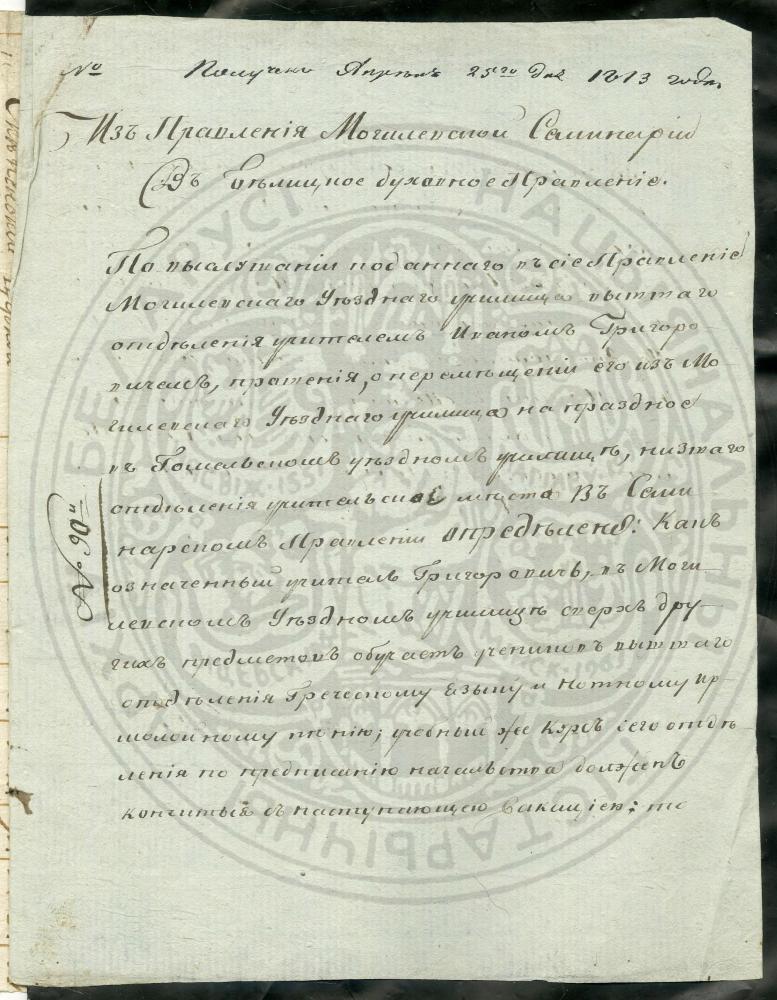 № Получено Апреля 25го дня 1813 года.
Изъ Правленія Могилевской Семинаріи
Въ Бѣлицкое духовное Правленіе.
По выслушаніи поданнаго въ сіе Правленіе
Могилевскаго Уѣзднаго училища вышшаго
отдѣленія учителемъ Иваномъ Григоро-
вичемъ, прошенія, о перемѣщеніи его изъ Мо-
гилевскаго Уѣзднаго училища на праздное
въ Гомельскомъ уѣздномъ училищѣ, низшаго
отдѣленія учительское мѣсто Въ Семи
нарскомъ Правленіи опредѣлено: Какъ
означенный учитель Григоровичь, въ Моги-
левскомъ Уѣздномъ училищѣ сверхъ дру-
гихъ предметовъ обучаетъ учениковъ вышшаго
отдѣленія Греческому языку и нотному ир-
молойному пѣнію; учебный же курсъ сего отдѣ
ленія по предписанію начальства долженъ
кончиться съ наступающею вакаціею: то
№ 90й
БЕЛАРУСІ
НАЦЫЯНАЛЬНЫ
ГІСТАРЫЧНЫ
АРХІЎ